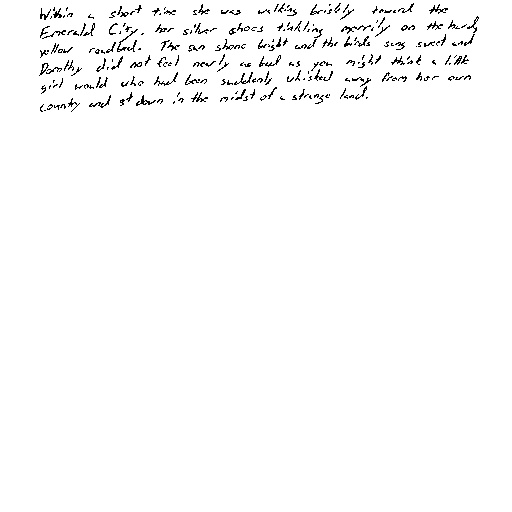 Within a short time she was walking briskly toward the
Emerald City, her silver shoes tinkling merrily on the hard,
yellow roadbed. The sun shone bright and the birds sang sweet and
Dorothy did not feel nearly as bad as you might think a little
girl would who had been suddenly whisked away from her own
country and set down in the midst of a strange land.